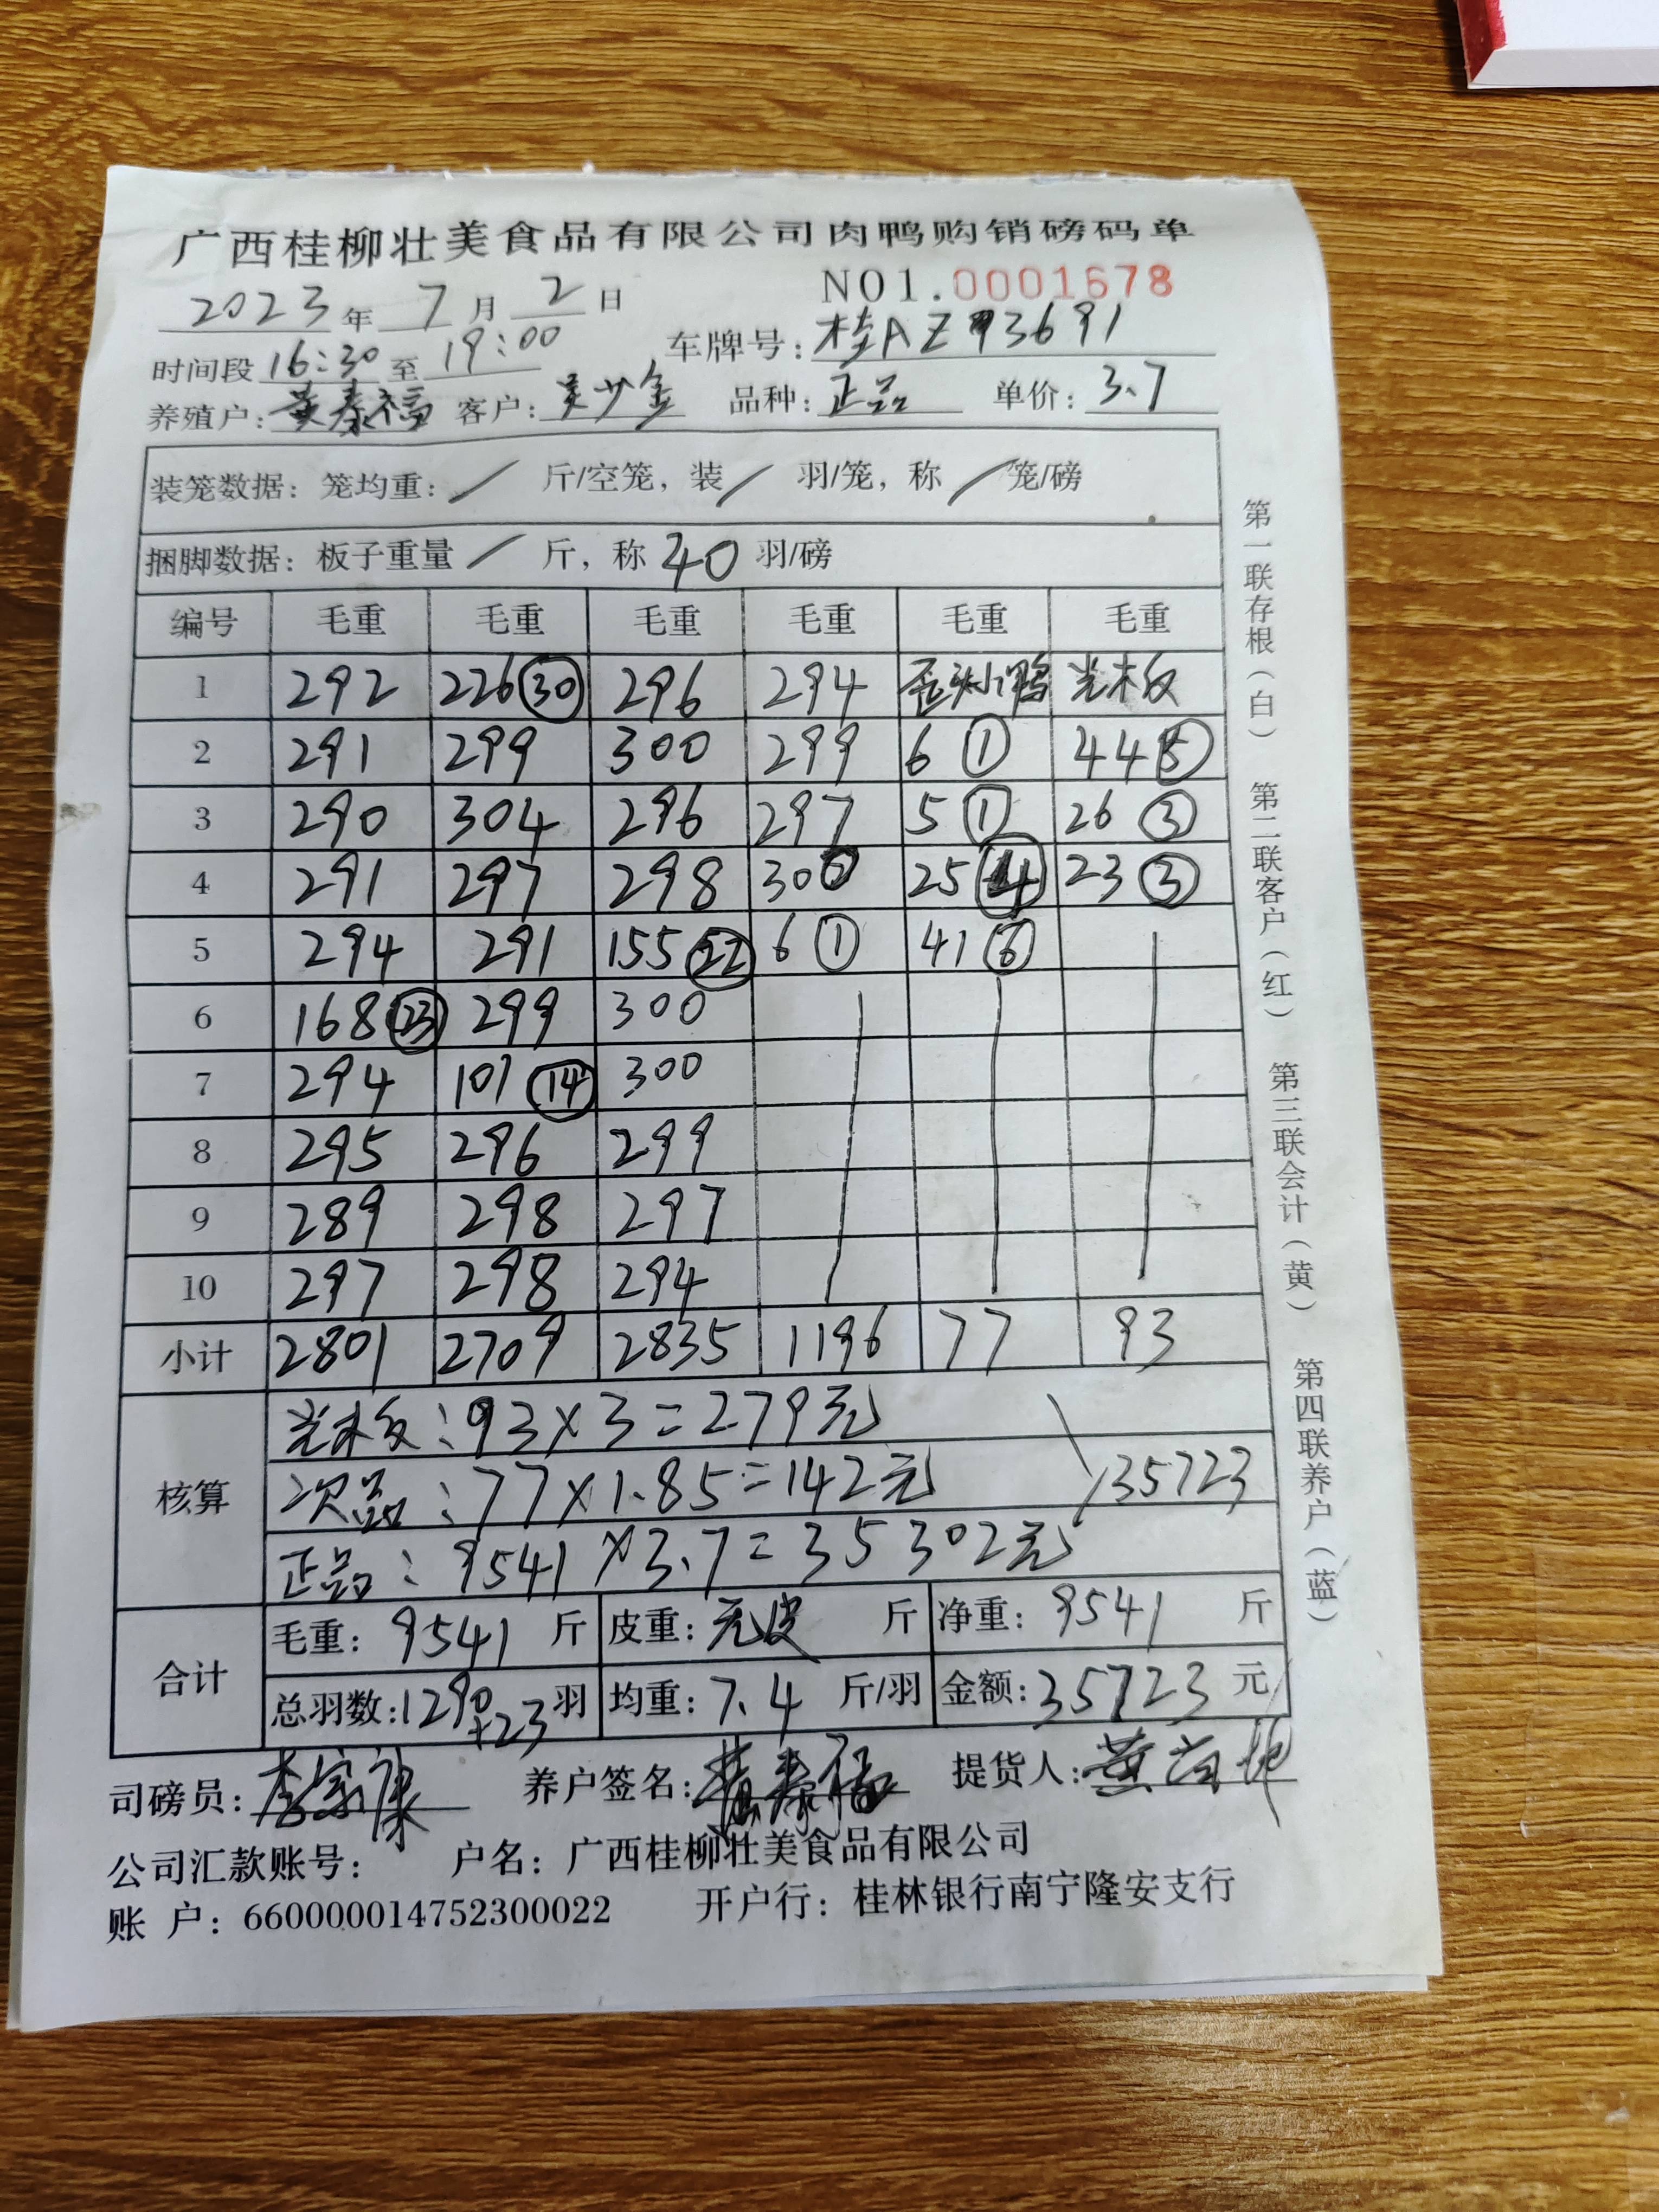 广西桂柳壮美食品有限公司肉鸭购销磅码单
2023年7月2日 NO1.0001678
时间段16:30至19:00 车牌号:桂AZ93691
养殖户:黄泰福 客户:吴少金 品种:正品 单价:3.7
装笼数据: 笼均重: / 斤/空笼, 装 / 羽/笼, 称 / 笼/磅
捆脚数据: 板子重量 / 斤, 称 40 羽/磅
编号 毛重 毛重 毛重 毛重 毛重 毛重
1 292 226㉚ 296 294 歪头小鸭 光板
2 291 299 300 299 6① 44
3 290 304 296 297 5① 26③
4 291 297 298 300 25④ 23③
5 294 291 155㉒ 6① 41⑥
6 168㉓ 299 300
7 294 101⑭ 300
8 295 296 299
9 289 298 297
10 297 298 294
小计 2801 2709 2835 1196 77 93
核算
光板:93×3=279元
次品:77×1.85=142元 35723
正品:9541×3.7=35302元
合计
毛重: 9541 斤 皮重: 无皮 斤 净重: 9541 斤
总羽数:1290+23羽 均重: 7.4 斤/羽 金额:35723元
司磅员:李家康 养户签名:黄泰福 提货人:黄
公司汇款账号: 户名: 广西桂柳壮美食品有限公司
账 户: 660000014752300022 开户行: 桂林银行南宁隆安支行
第一联存根(白) 第二联客户(红) 第三联会计(黄) 第四联养户(蓝)